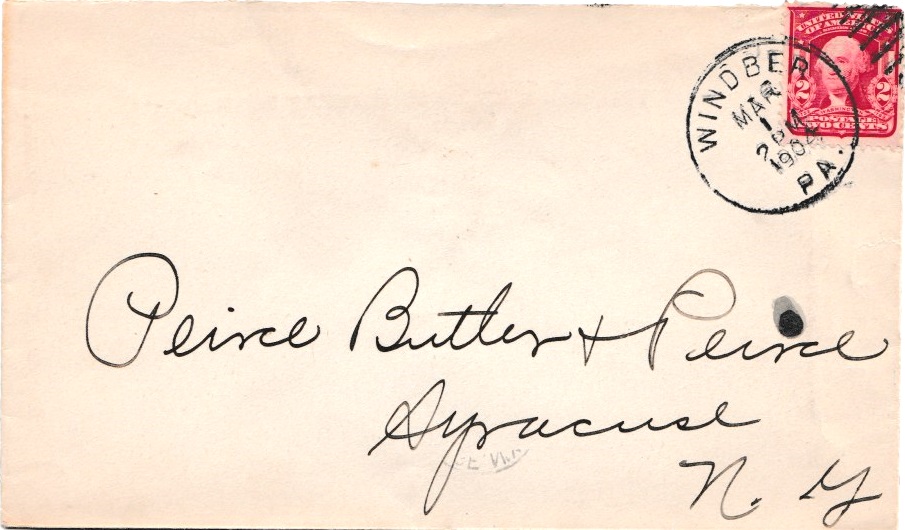 UNITED STATES
OF AMERICA
2 2
POSTAGE
TWO CENTS
WINDBER
MAR
1
2 PM
1904
PA.
Peirce Butler & Peirce
Syracuse
N. Y